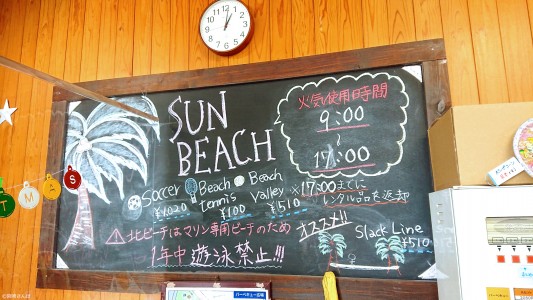 SUN
BEACH
火気使用時間
9:00
~
17:00
Soccer
¥1,020
Beach
tennis
¥100
Beach
Valley
¥510
※17:00までに
レンタル品を返却
⚠北ビーチはマリン専用ビーチのため
1年中 遊泳禁止!!!
オススメ!!
Slack Line
¥510
T M A S